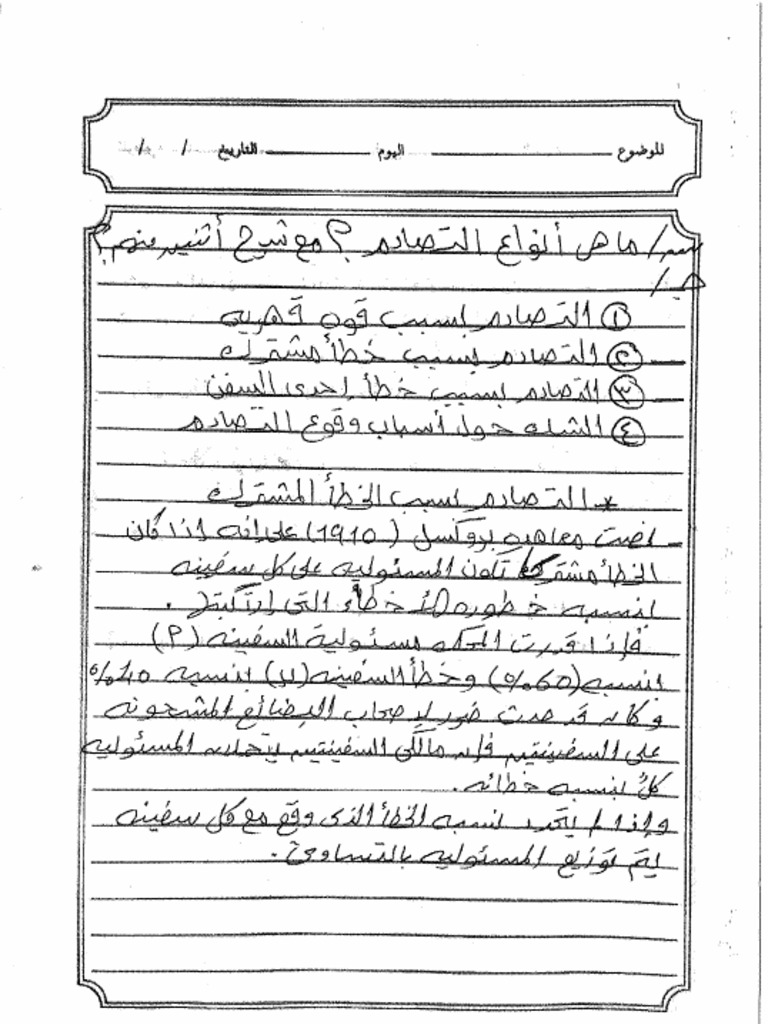 الموضوع ــــــــ اليوم ــــــــ التاريخ / /
س/ ما هى أنواع التصادم ؟ مع شرح أثنين منهم ؟
ج/
① التصادم بسبب قوه قهريه
② التصادم بسبب خطأ مشترك
③ التصادم بسبب خطأ إحدى السفن
④ الشك حول أسباب وقوع التصادم
* التصادم بسبب الخطأ المشترك
- نصت معاهده بروكسل (1910) على انه اذا كان
الخطأ مشترك تكون المسئوليه على كل سفينه
بنسبه خطوره الأخطاء التى إرتكبتها .
فإذا قررت المحكمه مسئولية السفينه (م)
بنسبه (60%) وخطأ السفينه (ن) بنسبه 40%
وكان قد حدث ضرر لاصحاب البضائع المشحونه
على السفينتين فإن مالكى السفينتين يتحملان المسئوليه
كلٌ بنسبه خطائه .
وإذا لم يحدد نسبه الخطأ الذى وقع مع كل سفينه
يتم توزيع المسئوليه بالتساوى .